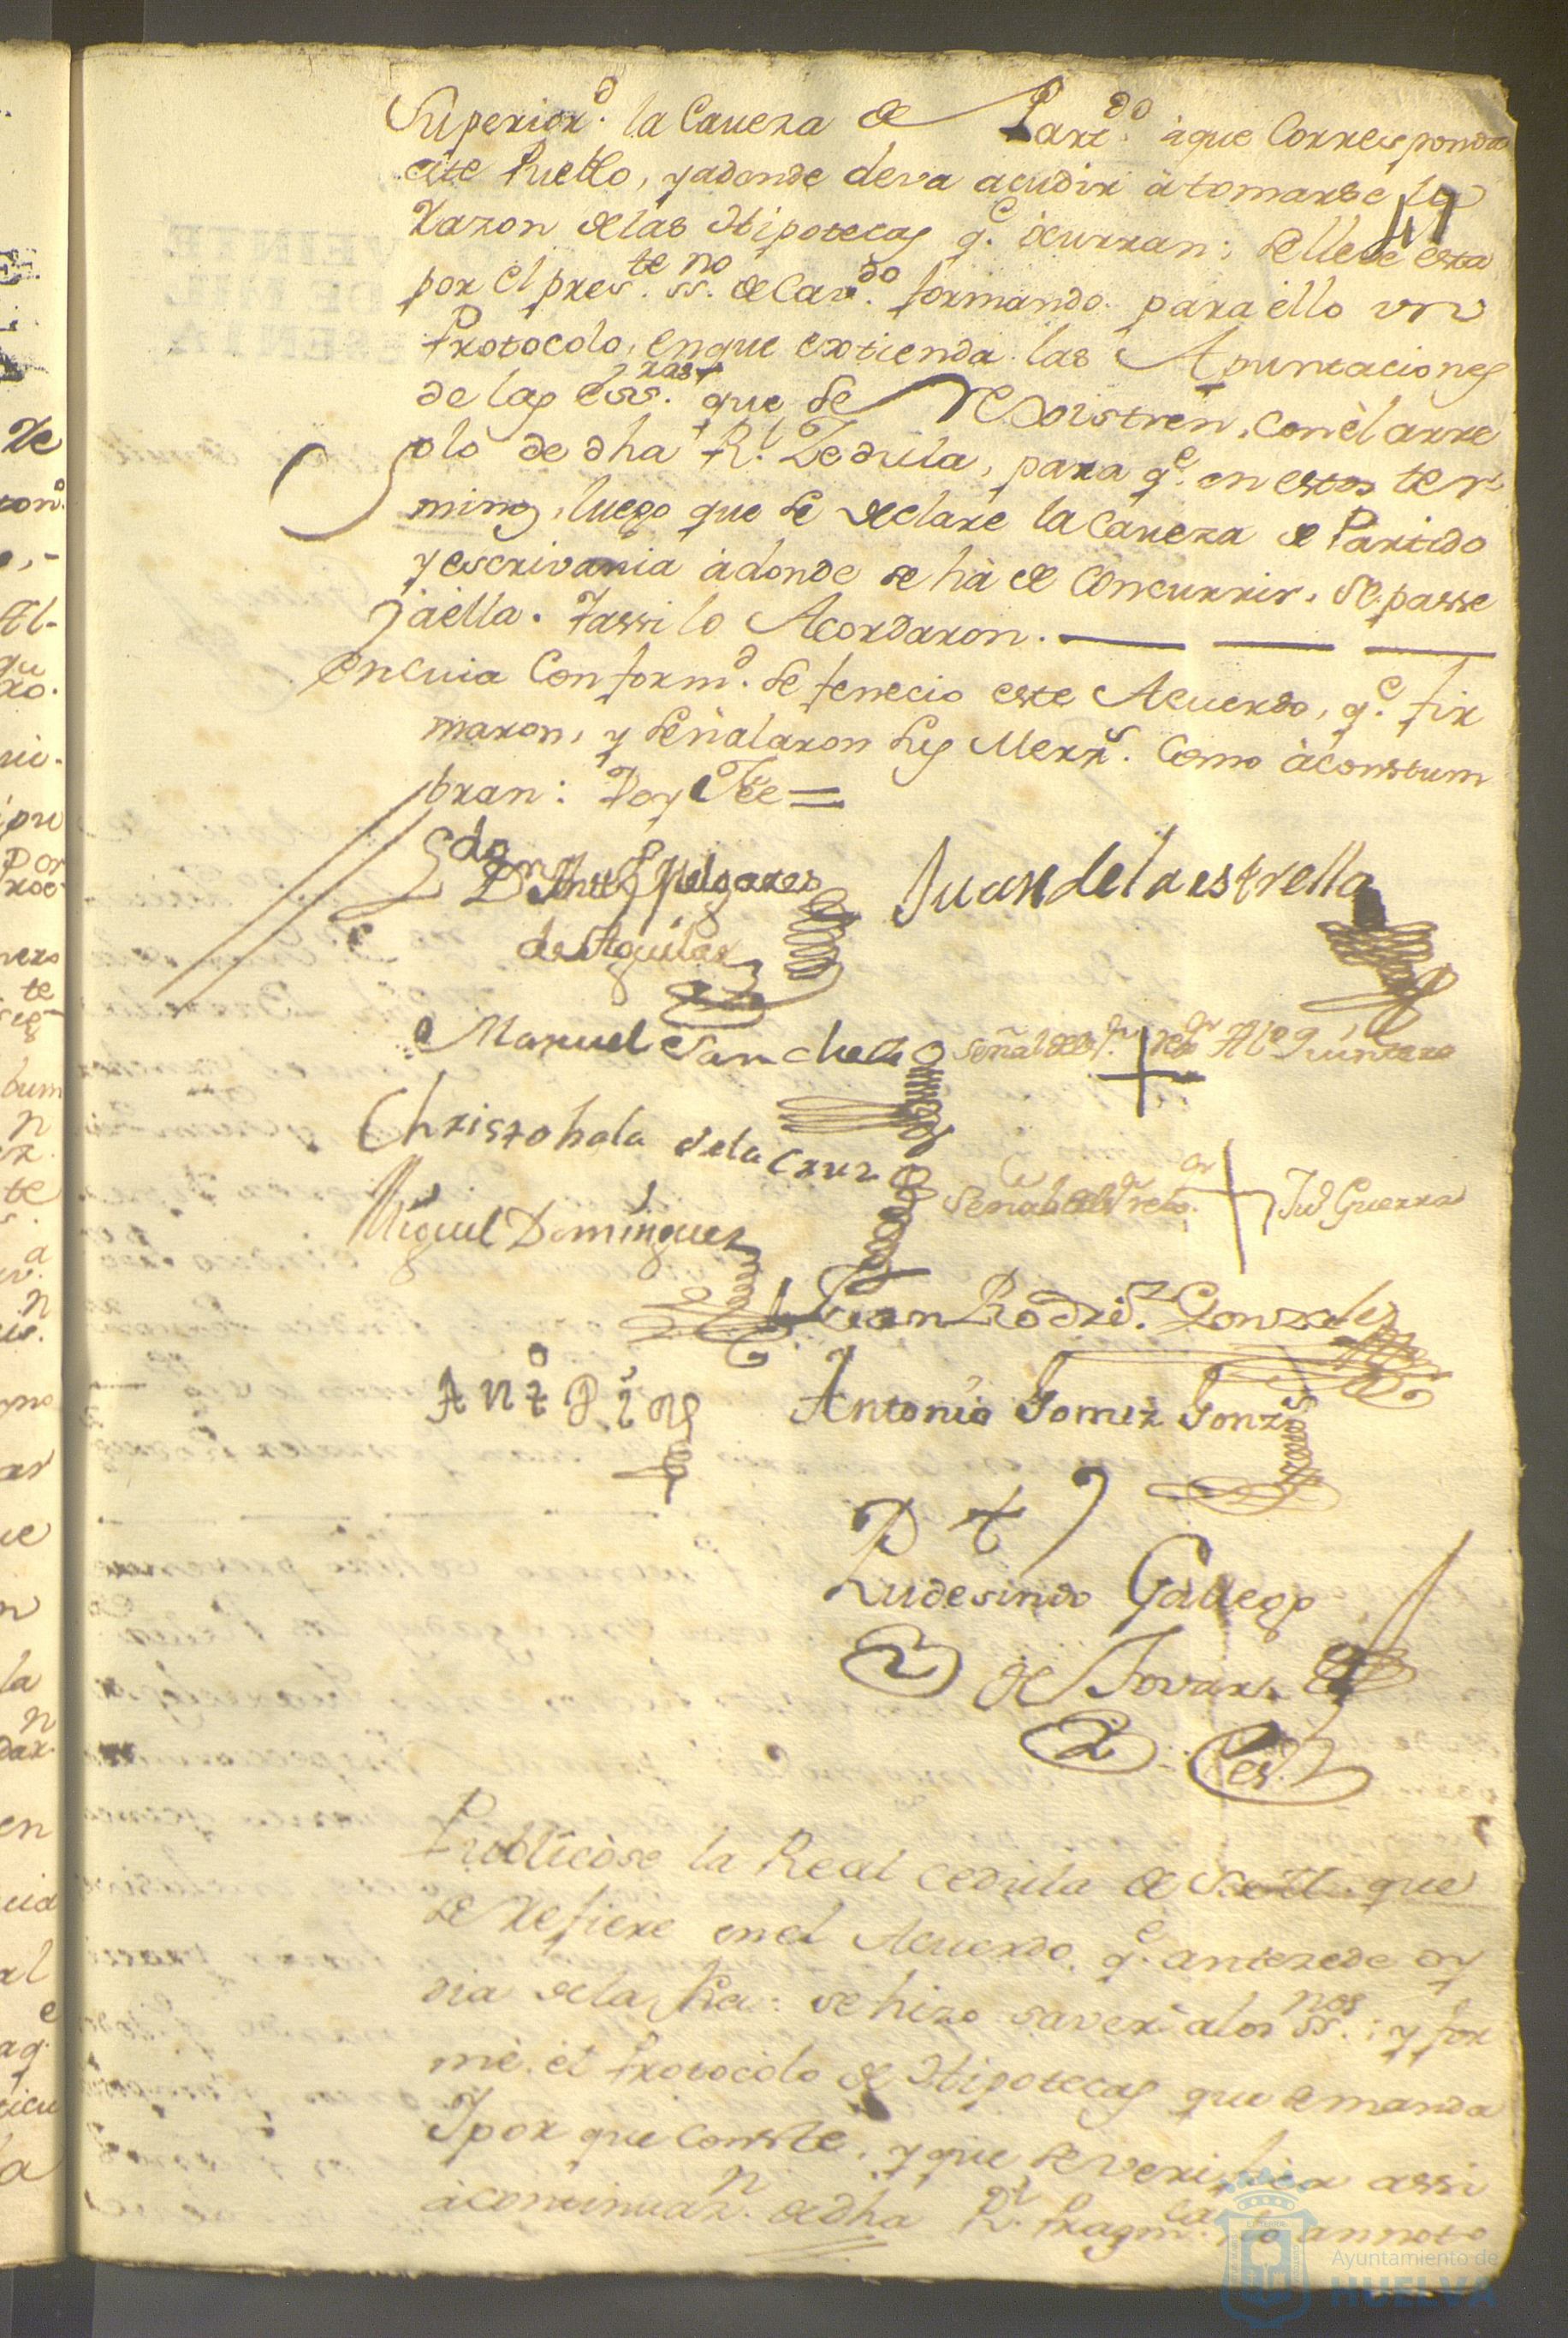 Superior.d la Caveza de Part.do àque Corresponda
este Pueblo, y adonde deva acudir à tomarse la
Razon de las Hipotecas q.e ocurran; se lleve esta
por el pres.te ss.no de Cav.do formando para ello un
Protocolo, en que extienda las Apuntaciones
de las Ess.ras que se Rexistren, con èl arre
glo de dha R.l Zedula, para q.e en estos ter
minos, luego que se declare la Caveza de Partido
y escrivania àdonde se hà de Concurrir, se passe
à ella. Y assi lo Acordaron.
En cuia Conform.d se fenecio este Acuerdo, q.e fir
maron, y señalaron sus Merz.s Como àcostum
bran: Doy Fèe =
Ldo Dn Ant.o Pulgares
de Aguilar
Juan de la estrella
Manuel Sanchez
Señal del s.r reg.or Al.o Quintero
Christobal de la Cruz
Señal del s.r reg.or Ju.o Guerra
Miguel Dominguez
Juan Rodrig.z Gonzalez
Ant.o Piz
Antonio Gomez Gonz.s
Rudesindo Gallego
de Tovar
es.
Publicòse la Real Cedula de que
se Refiere en el Acuerdo, q.e antezede oy
dia de la fha: se hizo saver à los ss.nos; y for
mè el Protocolo de Hipotecas que se manda
Y por que Conste, y que se verifica assi
à continuaz.n de dha R.l Pragm.ca, lo annoto
Ayuntamiento de
HUELVA